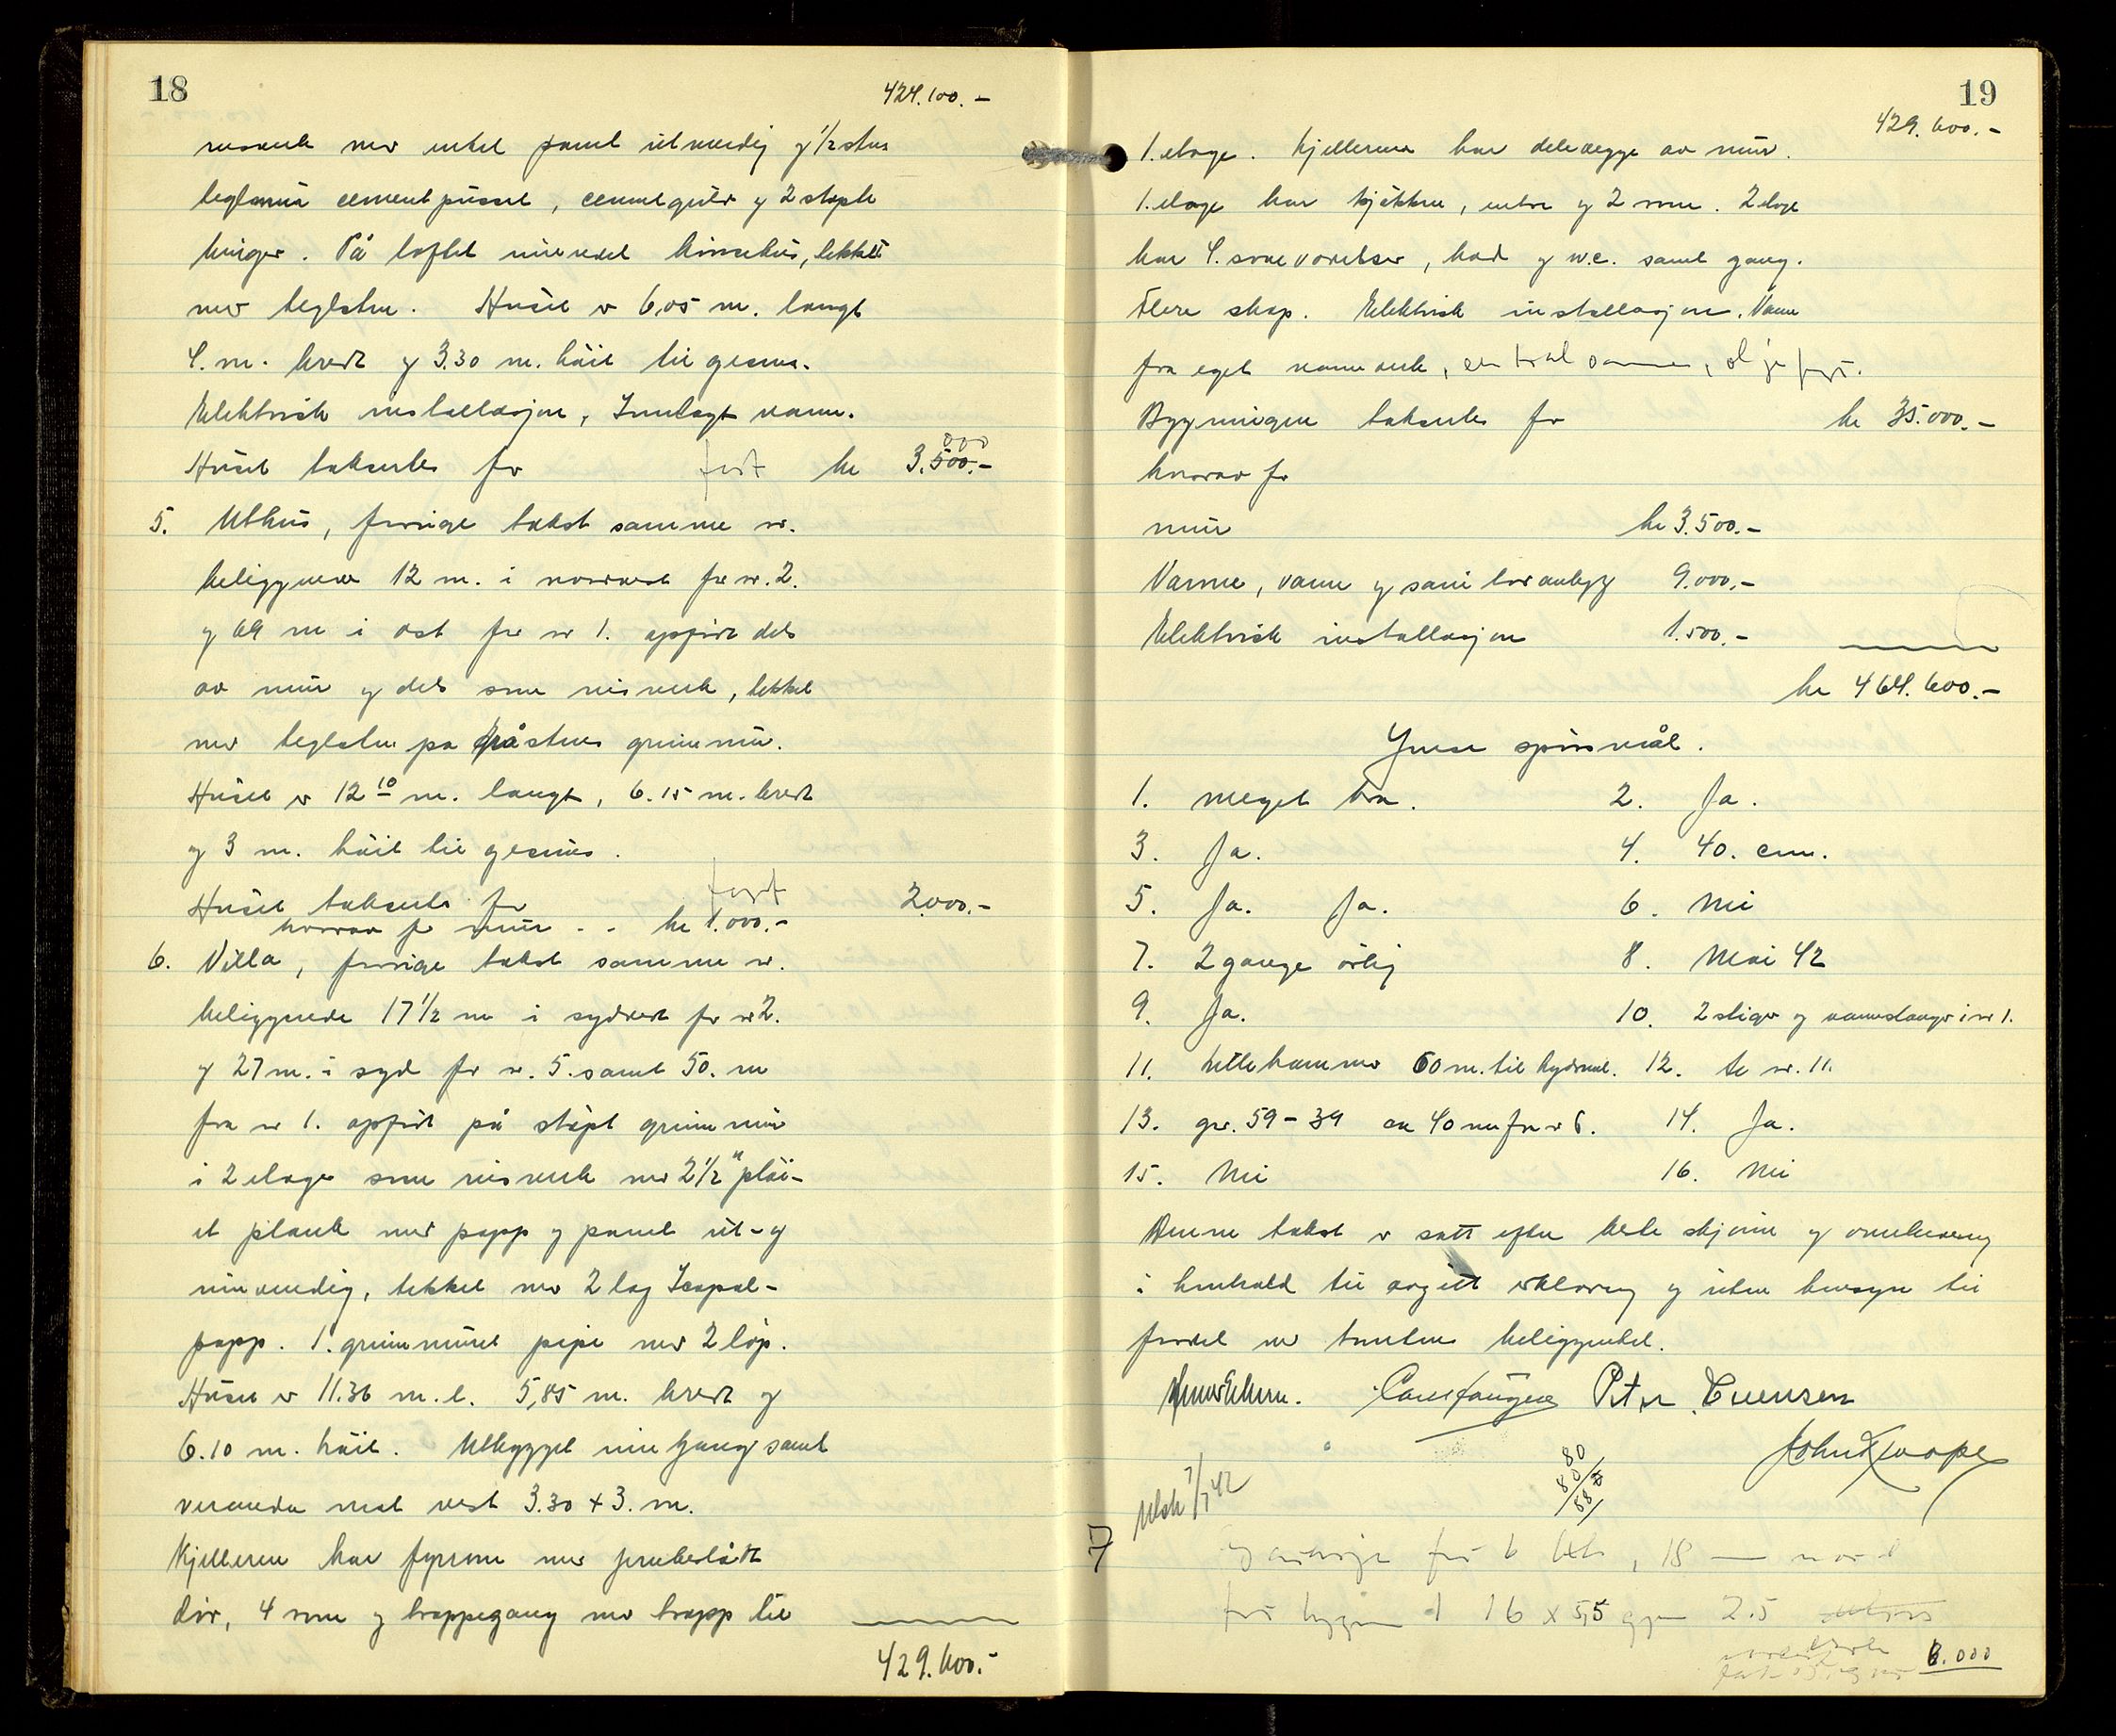 18
424.100.-
med enkel panel utvendig og 1/2 stens
teglmur cementpusset, cementgulv og 2 støpte
binger. På loftet innredet hønsehus, tekket
med teglsten. Huset er 6,05 m. langt
4. m. bredt og 3.30 m. høit til gesims.
Elektrisk installasjon, Innlagt vann.
000
Huset takseres for fast kr 3.500.-
5. Uthus, forrige takst samme nr.
beliggende 12 m. i nordvest for nr. 2.
og 69 m i øst for nr 1. opført dels
av mur og dels som reisverk, tekket
med teglsten på gråstens grunnmur.
Huset er 12 10 m. langt, 6.15 m. bredt
og 3 m. høit til gesims.
Huset takseres for fast 2000.-
hvorav for mur - - kr 1.000.-
6. Villa, forrige takst samme nr.
beliggende 17 1/2 m i sydvest for nr 2.
og 27 m. i syd for nr. 5. samt 50. m
fra nr 1. opført på støpt grunnmur
i 2 etager som reisverk med 2 1/2" pløi-
et plank med papp og panel ut- og
innvendig, tekket med 2 lag Icopal-
papp. 1. grunnmuret pipe med 2 løp.
Huset er 11.36 m. l. 5,85 m. bredt og
6.10 m. høit. Utbygget inngang samt
veranda mot vest 3.30 + 3. m.
Kjelleren har fyrrom med jernbeslått
dør, 4 rom og trappegang med trapp til
429.600.-
19
429.600.-
1. etage. Kjelleren har delevegge av mur.
1. etage har kjøkken, entre og 2 rom. 2 etage
har 4. soveværelser, bad og w.c. samt gang.
Flere skap. Elektrisk installasjon. Vann
fra eget vannverk, sentralvarme, oljefyrt.
Bygningen takseres for kr 35.000.-
hvorav for
mur kr 3.500.-
Varme, vann og sanitæranlegg 9.000.-
Elektrisk installasjon 1.500.-
kr 464.600.-
Ymse spørsmål.
1. meget bra. 2. Ja.
3. Ja. 4. 40. cm.
5. Ja. Ja. 6. Nei
7. 2 gange årlig 8. Mai 42
9. Ja. 10. 2 stiger og vannslanger i nr 1.
11. Lillehammer 60 m. til hydrant. 12. se nr. 11.
13. gnr. 59 - 39 ca 40 m fra nr 6. 14. Ja.
15. Nei 16. Nei
Denne takst er satt efter beste skjønn og overbevisning
i henhold til avgitt erklæring og uten hensyn til
fordel ved tomtens beliggenhet.
Peter Evensen
7/7 42
80
80
88
7 18 nord
for 16 x 5,5 2.5
6.000